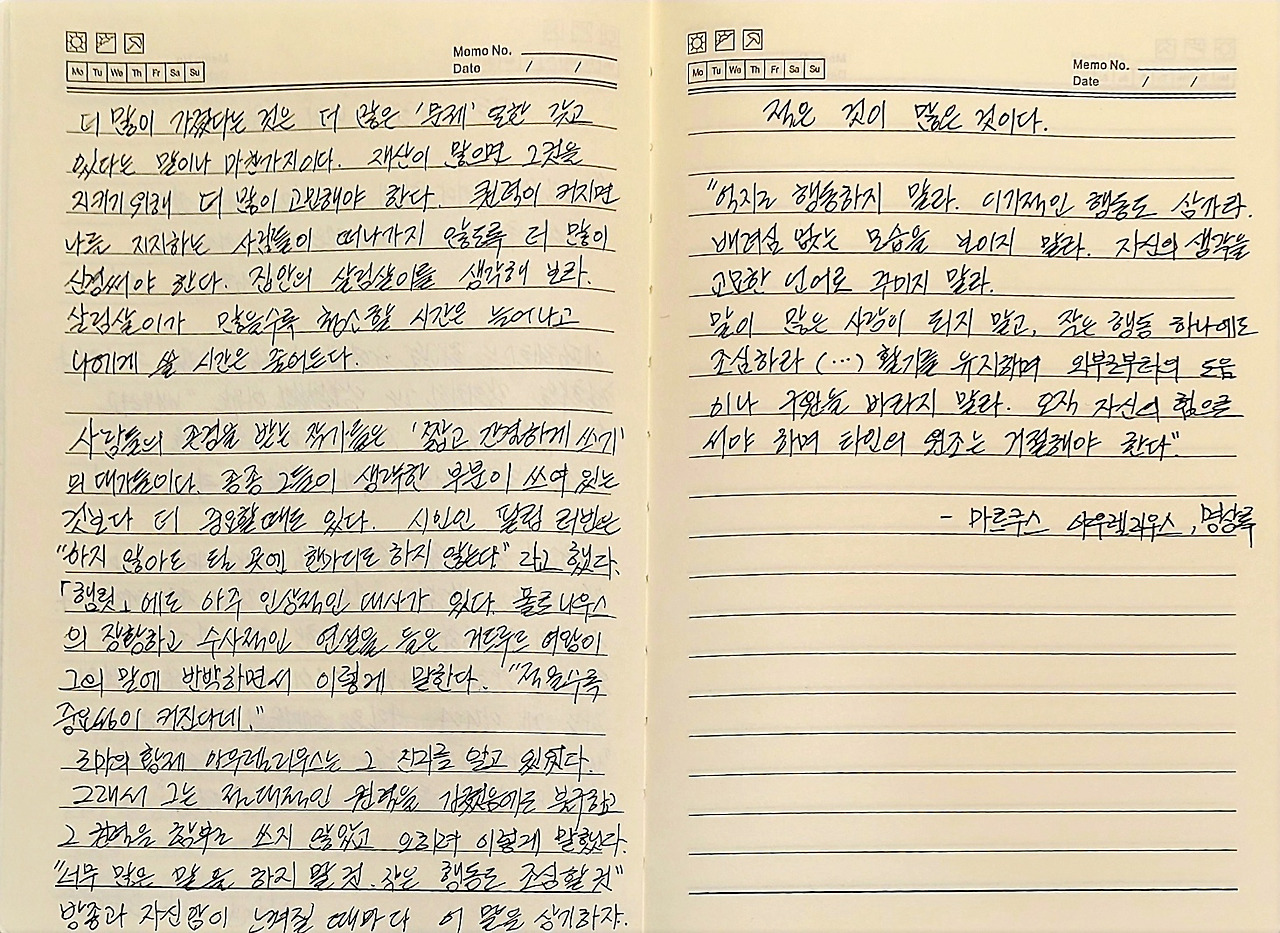 Memo No.
Mo Tu We Th Fr Sa Su
Date / /
더 많이 가졌다는 것은 더 많은 '문제' 또한 갖고
있다는 말이나 마찬가지이다. 재산이 많으면 그것을
지키기 위해 더 많이 고민해야 한다. 권력이 커지면
나를 지지하는 사람들이 떠나가지 않도록 더 많이
신경써야 한다. 집안의 살림살이를 생각해 보라.
살림살이가 많을수록 청소할 시간은 늘어나고
나에게 쓸 시간은 줄어든다.
사람들의 존경을 받는 작가들은 '짧고 간결하게 쓰기'
의 대가들이다. 종종 그들이 생략한 부분이 쓰여 있는
것보다 더 중요할 때도 있다. 시인인 필립 러빈은
"하지 않아도 될 곳에 한마디도 하지 않는다" 라고 했다.
「햄릿」에도 아주 인상적인 대사가 있다. 폴로니우스
의 장황하고 수사적인 연설을 들은 거트루드 여왕이
그의 말에 반박하면서 이렇게 말한다. "적을수록
중요성이 커진다네."
로마의 황제 아우렐리우스는 그 진리를 알고 있었다.
그래서 그는 절대적인 권력을 가졌음에도 불구하고
그 권력을 함부로 쓰지 않았고 오히려 이렇게 말했다.
"너무 많은 말을 하지 말 것. 작은 행동도 조심할 것"
방종과 자신감이 느껴질 때마다 이 말을 상기하자.
Memo No.
Mo Tu We Th Fr Sa Su
Date / /
적은 것이 많은 것이다.
"억지로 행동하지 말라. 이기적인 행동도 삼가라.
배려심 없는 모습을 보이지 말라. 자신의 생각을
교묘한 언어로 꾸미지 말라.
말이 많은 사람이 되지 말고, 작은 행동 하나에도
조심하라 (…) 활기를 유지하며 외부로부터의 도움
이나 구원을 바라지 말라. 오직 자신의 힘으로
서야 하며 타인의 원조는 거절해야 한다"
- 마르쿠스 아우렐리우스, 명상록